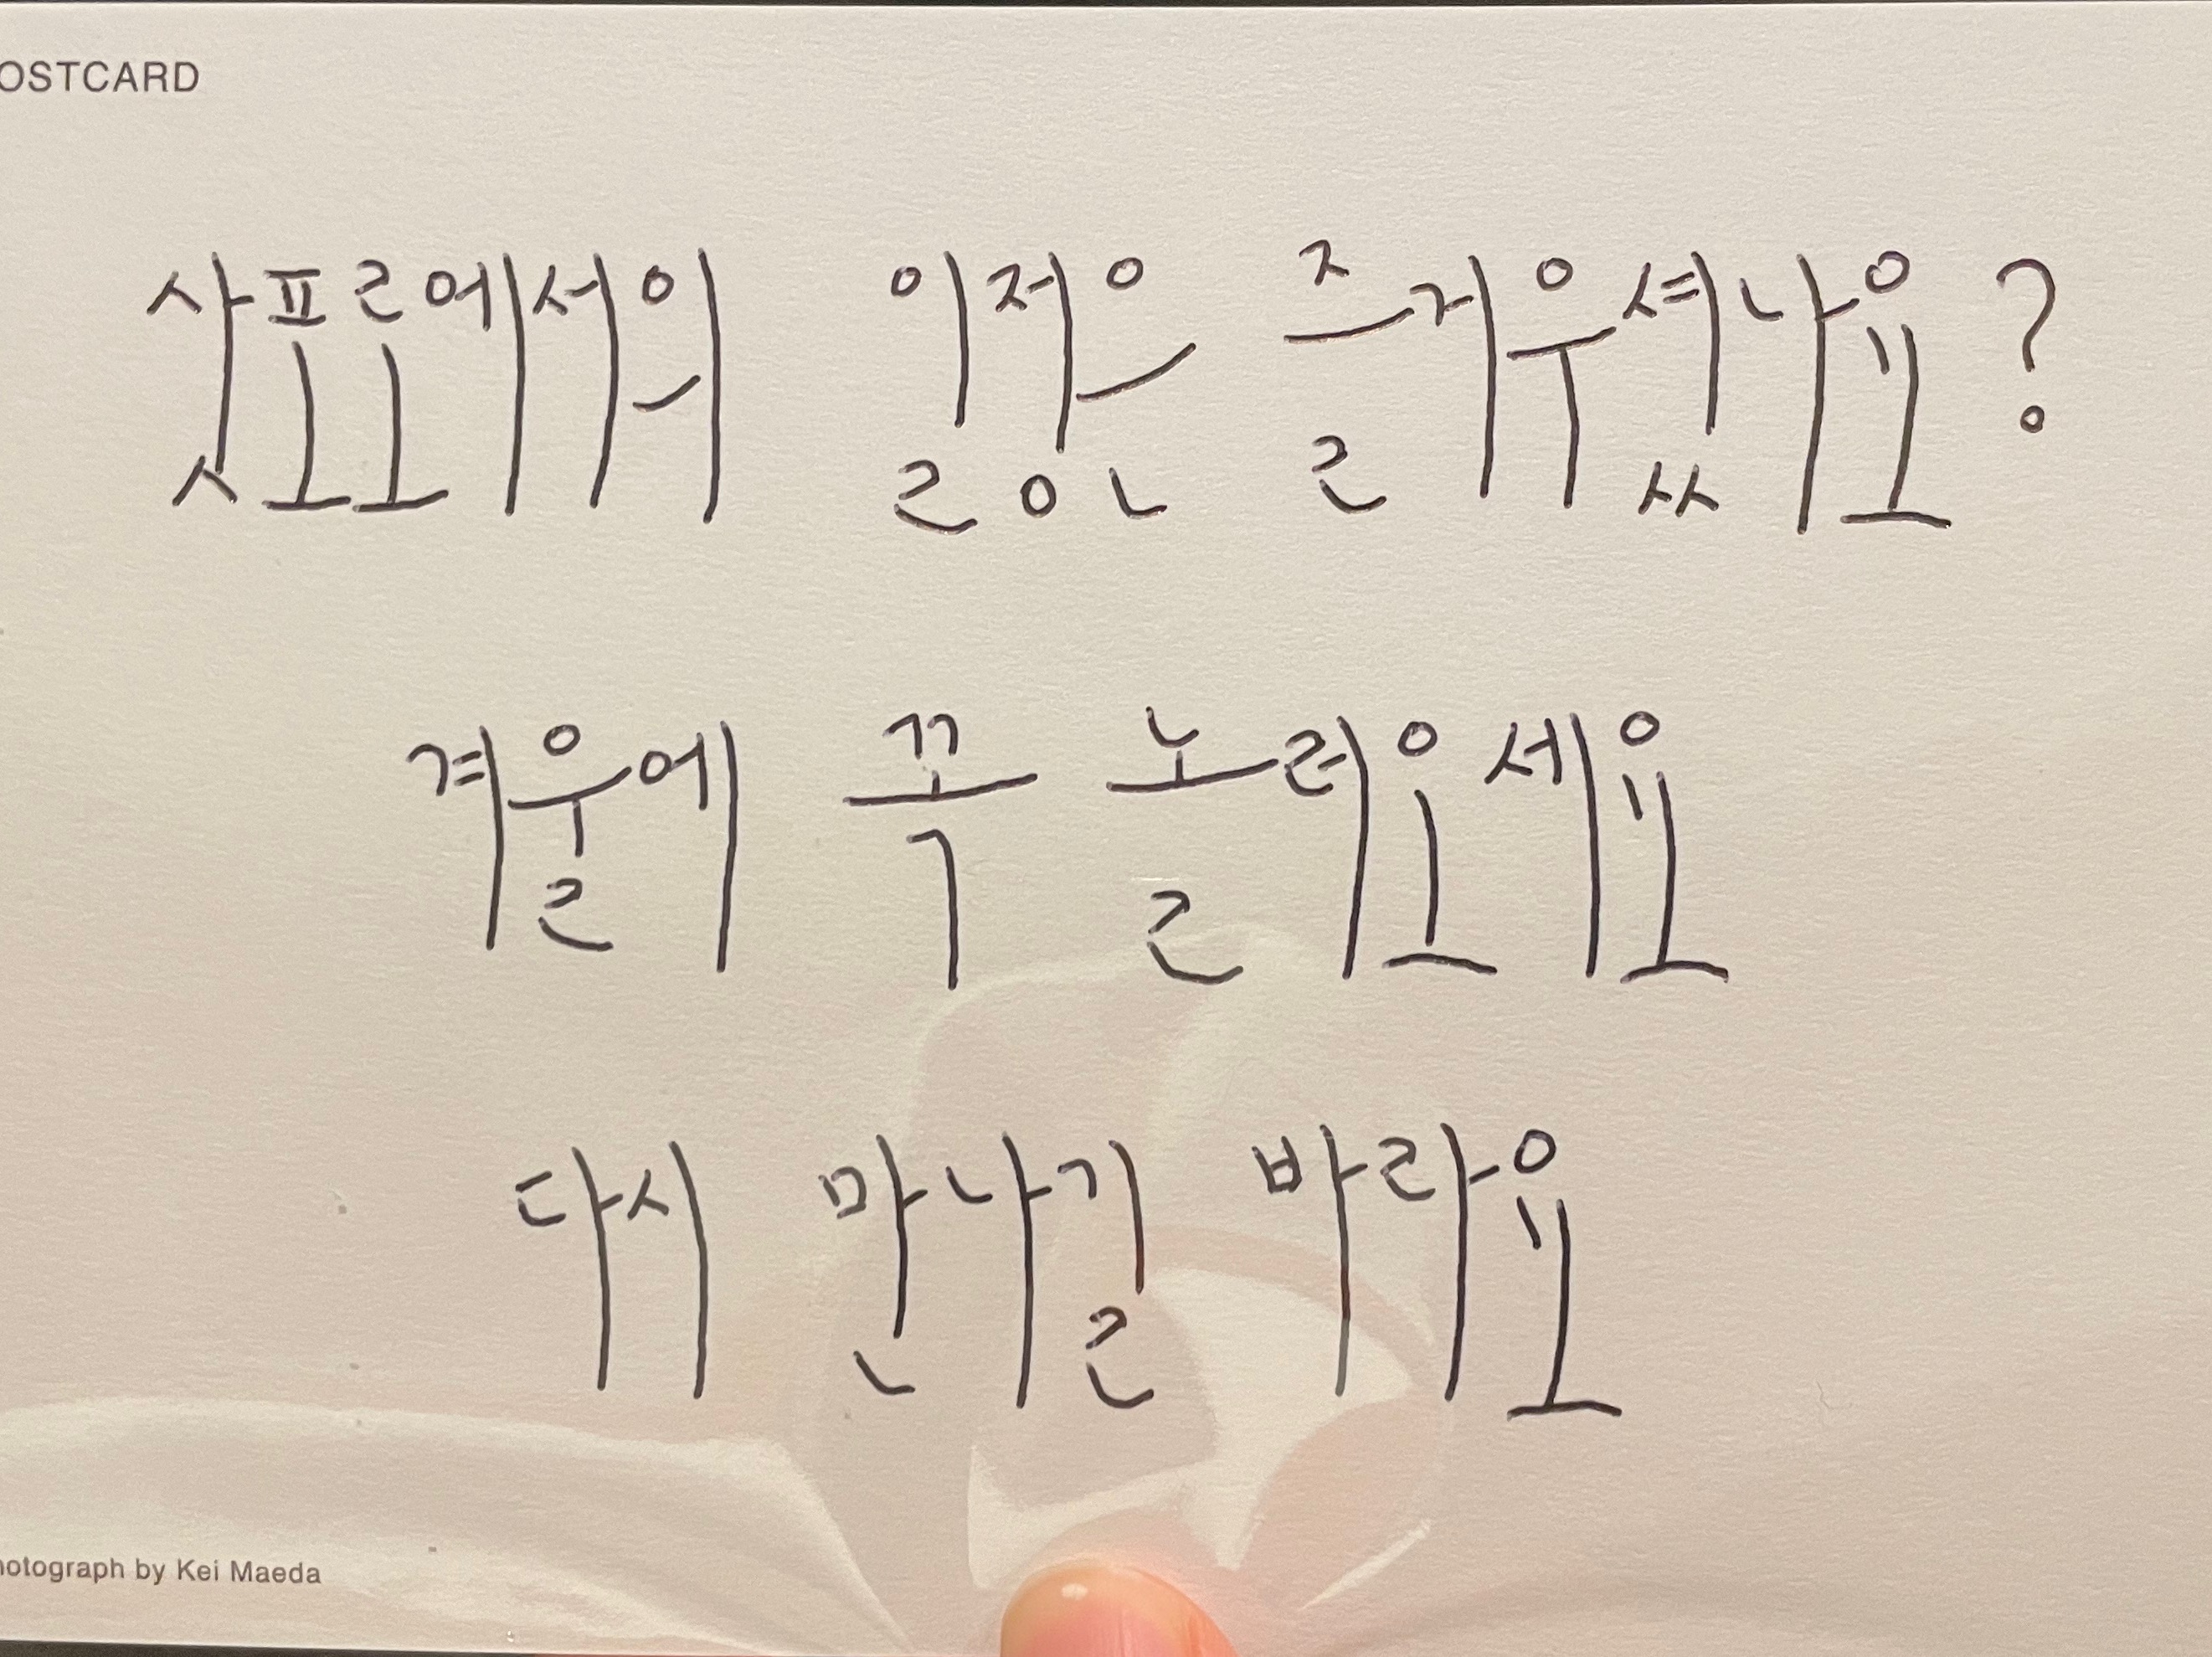 OSTCARD
삿포로에서의 일정은 즐거우셨나요?
겨울에 꼭 놀러오세요
다시 만나길 바라요
hotograph by Kei Maeda